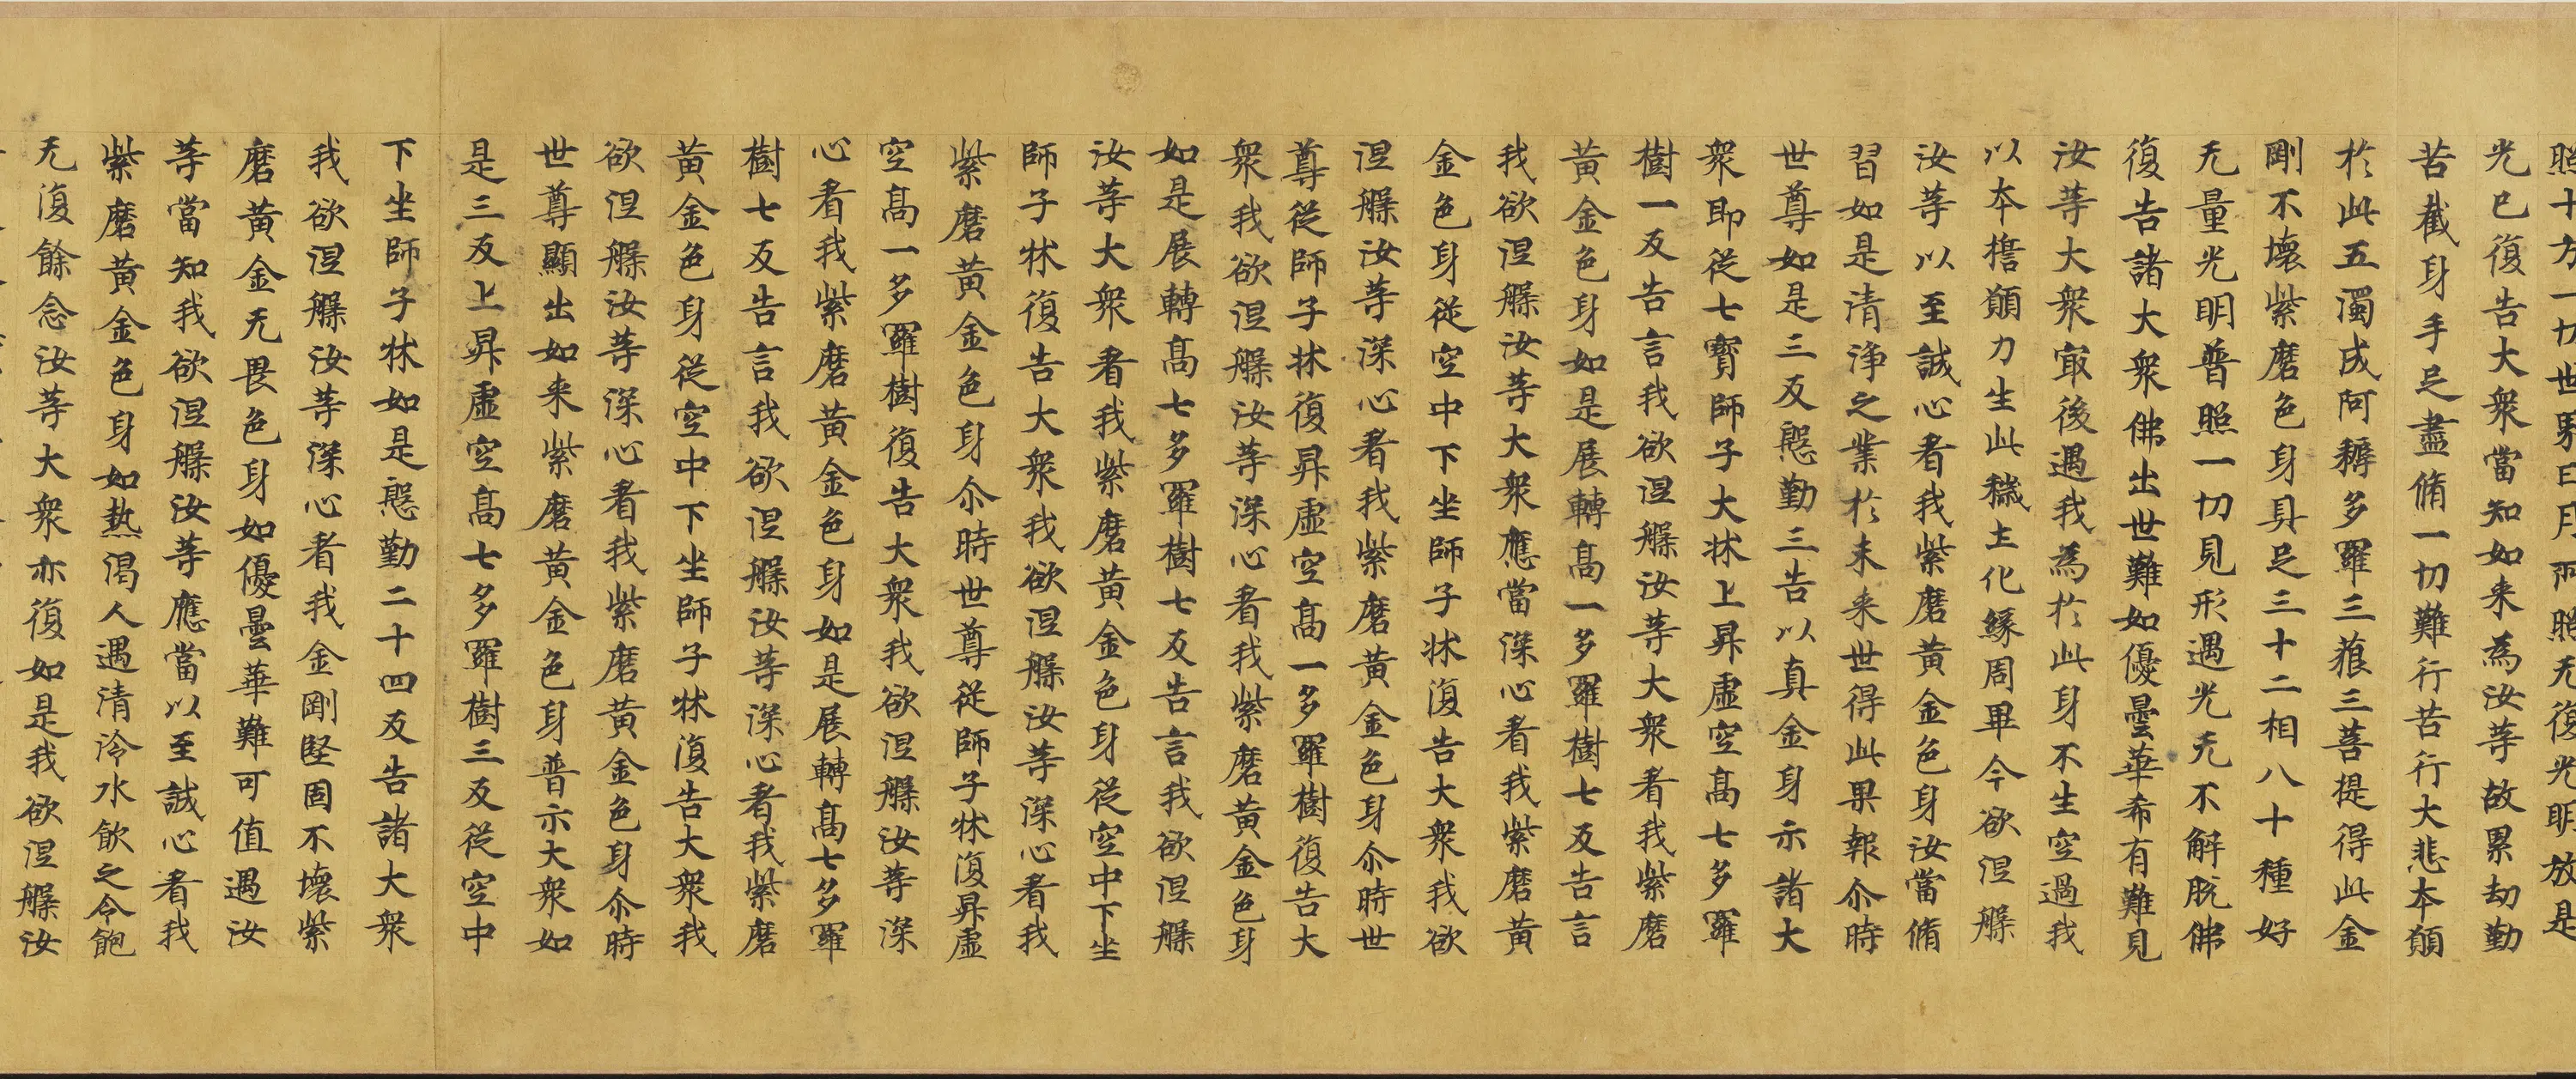 照十方一切世界日月所照无復光明放是
光已復告大衆當知如来為汝等故累劫勤
苦截身手足盡脩一切難行苦行大悲本願
於此五濁成阿耨多羅三藐三菩提得此金
剛不壞紫磨色身具足三十二相八十種好
无量光明普照一切見形遇光无不解脱佛
復告諸大衆佛出世難如優曇華希有難見
汝等大衆冣後遇我為於此身不生空過我
以本擔願力生此穢土化緣周畢今欲涅槃
汝等以至誠心看我紫磨黄金色身汝當脩
習如是清淨之業於未来世得此果報尒時
世尊如是三反慇勤三告以真金身示諸大
衆即從七寶師子大牀上昇虛空高七多羅
樹一反告言我欲涅槃汝等大衆看我紫磨
黄金色身如是展轉高一多羅樹七反告言
我欲涅槃汝等大衆應當深心看我紫磨黄
金色身從空中下坐師子牀復告大衆我欲
涅槃汝等深心看我紫磨黄金色身尒時世
尊從師子牀復昇虛空高一多羅樹復告大
衆我欲涅槃汝等深心看我紫磨黄金色身
如是展轉高七多羅樹七反告言我欲涅槃
汝等大衆看我紫磨黄金色身從空中下坐
師子牀復告大衆我欲涅槃汝等深心看我
紫磨黄金色身尒時世尊從師子牀復昇虛
空高一多羅樹復告大衆我欲涅槃汝等深
心看我紫磨黄金色身如是展轉高七多羅
樹七反告言我欲涅槃汝等深心看我紫磨
黄金色身從空中下坐師子牀復告大衆我
欲涅槃汝等深心看我紫磨黄金色身尒時
世尊顯出如来紫磨黄金色身普示大衆如
是三反上昇虛空高七多羅樹三反從空中
下坐師子牀如是慇勤二十四反告諸大衆
我欲涅槃汝等深心看我金剛堅固不壞紫
磨黄金无畏色身如優曇華難可值遇汝
等當知我欲涅槃汝等應當以至誠心看我
紫磨黄金色身如熱渴人遇清冷水飲之令飽
无復餘念汝等大衆亦復如是我欲涅槃汝